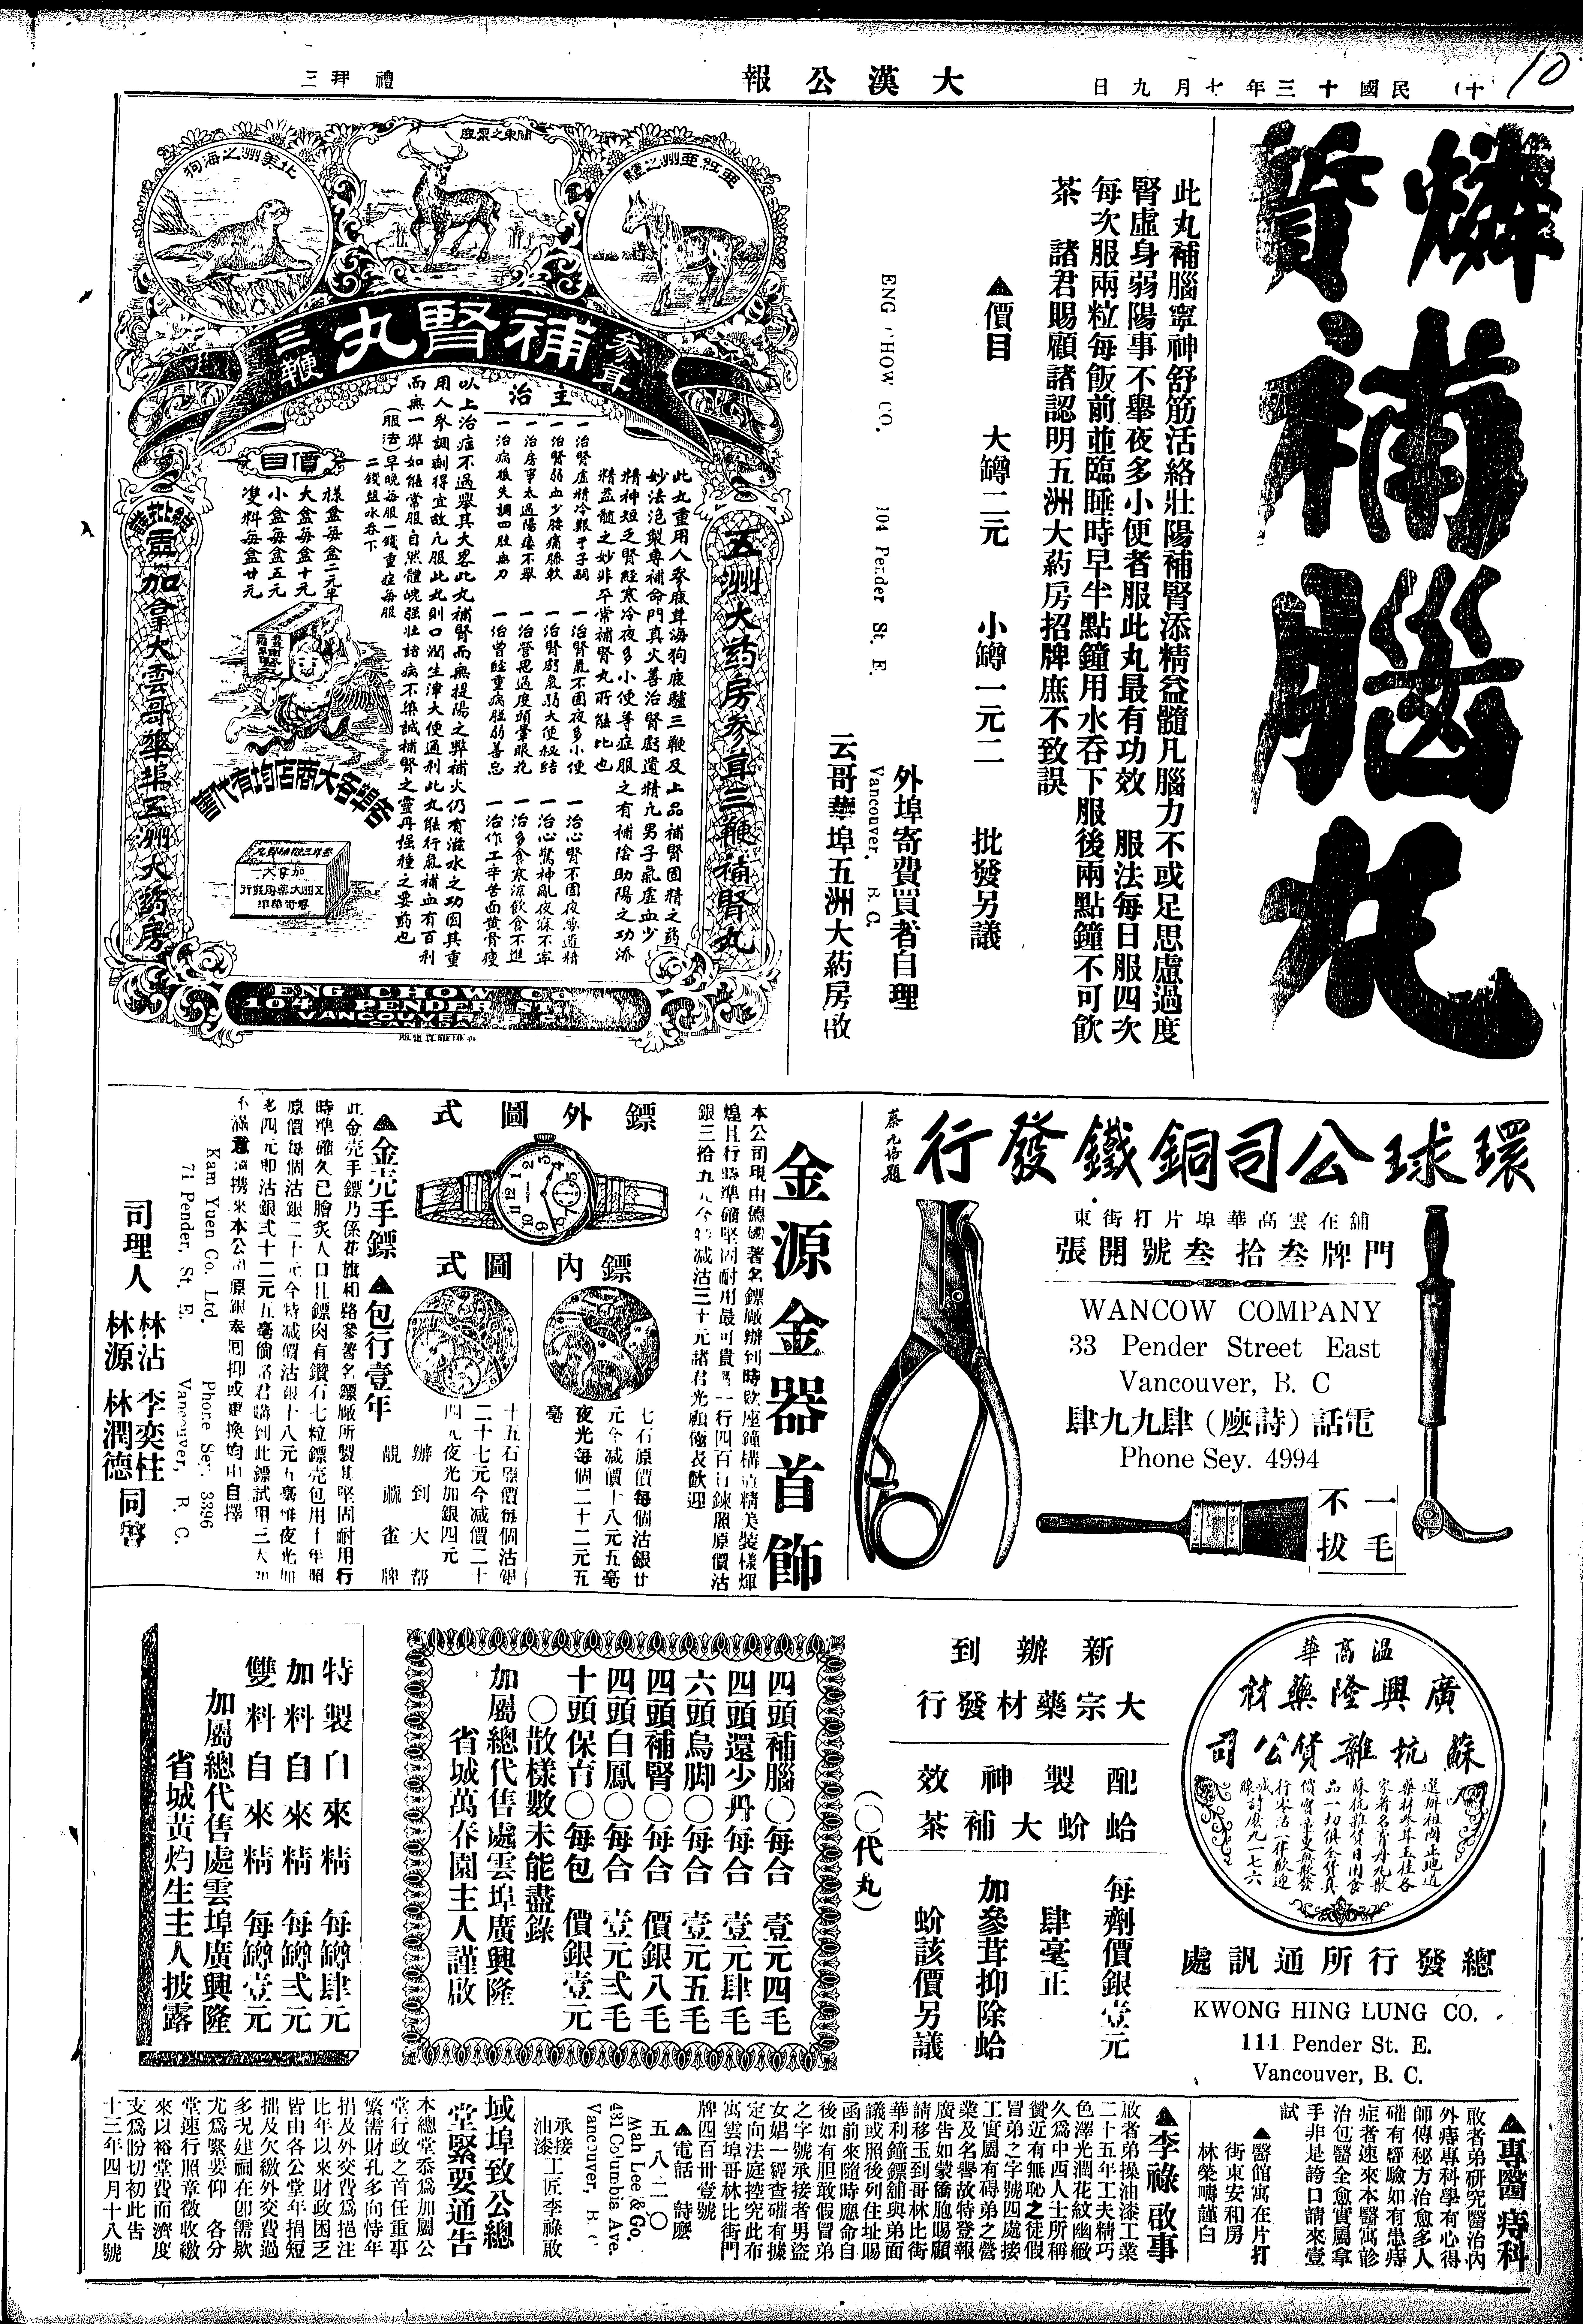 (十) 民國十三年七月九日
大漢公報
禮拜三
10
燐質補腦丸
此丸補腦寧神舒筋活絡壯陽補腎添精益髓凡腦力不或足思慮過度
腎虛身弱陽事不舉夜多小便者服此丸最有功效 服法每日服四次
每次服兩粒每飯前並臨睡時早半點鐘用水吞下服後兩點鐘不可飲
茶 諸君賜顧諸認明五洲大葯房招牌庶不致誤
▲價目 大罇二元 小罇一元二 批發另議
外埠寄費買者自理
ENG CHOW CO. 104 Pender St. E. Vancouver, B. C.
云哥華埠五洲大葯房啟
亞細亞州之驢
關東之梁鹿
北美洲之海狗
參茸
補腎丸
三鞭
五洲大葯房參茸三鞭補腎丸
此丸重用人參鹿茸海狗鹿驢三鞭及上品補腎固精之葯
妙法泡製專補命門真火善治腎虧遺精凡男子氣虛血少
精神短乏腎經寒冷夜多小便等症服之有補陰助陽之功添
精益髓之妙非平常補腎丸所能比也
主治
一治腎虛精冷艱于子嗣 一治腎氣不固夜多小便 一治心腎不固夜夢遺精
一治腎弱血少腰痛脚軟 一治腎虧氣弱大便秘結 一治心驚神亂夜寐不寧
一治房事太過陽痿不舉 一治營思過度頭暈眼花 一治多食寒涼飲食不進
一治病後失調四肢無力 一治曾經重病腦弱善忘 一治作工辛苦面黃骨瘦
以上治症不過舉其大畧此丸補腎而無提陽之弊補火仍有滋水之功因其重
用人參調劑得宜故凡服此丸則口潤生津大便通利此丸能行氣補血有百利
而無一弊如能常服自然體魄强壯諸病不染誠補腎之靈丹强種之妥葯也
(服法)早晚每服一錢重症每服
二錢盐水吞下
價目
樣盒每盒二元半
大盒每盒十元
小盒每盒五元
雙料每盒廿元
各埠各大商店均有代售
加拿大雲哥華埠五洲大葯房
ENG CHOW CO
104 PENDER ST. E.
VANCOUVER B. C.
CANADA
環球公司銅鐵發行
蔡元培題
舖在雲高華埠片打街東
門牌叁拾叁號開張
WANCOW COMPANY
33 Pender Street East
Vancouver, B. C
電話(詩麼)肆九九肆
Phone Sey. 4994
一毛
不拔
金源金器首飾
本公司現由德國著名鏢廠辦到時款座鐘構造精美裝樣煇
煌且行時準確堅固耐用最可貴者一行四百日鍊照原價沽
銀三拾九元今特减沽三十元諸君光顧極表歡迎
鏢外圖式
鏢內
圖式
七石原價每個沽銀廿
元今减價十八元五毫
夜光每個二十二元五
毫
十五石原價每個沽銀
二十七元今减價二十
四元夜光加銀四元
辦到大帮
靚蔴雀牌
▲金壳手鏢 ▲包行壹年
此金壳手鏢乃係花旗和路參著名鏢廠所製其堅固耐用行
時準確久已膾炙人口且鏢肉有鑽石七粒鏢壳包用十年照
原價每個沽銀二十元今特减價沽銀十八元五毫雖夜光加
多四元即沽銀弍十二元五毫倘諸君購到此鏢試用三天如
不滿意請携來本公司原銀奉回抑或更換均由自擇
Kam Yuen Co. Ltd. Phone Sey. 3396
71 Pender, St. E. Vancouver, B. C.
司理人 林沾 李奕柱
林源 林潤德 同啓
温高華
廣興隆藥材
蘇杭雜貨公司
選辦祖國正地道
藥材參茸玉桂各
家著名膏丹丸散
蘇杭雜貨日用食
品一切俱全貨真
價實童叟無欺發
行零沽一律歡迎
綫詩麼九一七六
總發行所通訊處
KWONG HING LUNG CO.
111 Pender St. E.
Vancouver, B. C.
新辦到
大宗藥材發行
配製神效
蛤蚧大補茶
每劑價銀壹元
肆毫正
加參茸抑除蛤
蚧該價另議
(〇代丸)
四頭補腦〇每合 壹元四毛
四頭還少丹每合 壹元肆毛
六頭烏脚〇每合 壹元五毛
四頭補腎〇每合 價銀八毛
四頭白鳳〇每合 壹元弍毛
十頭保育〇每包 價銀壹元
〇散樣數未能盡錄
加屬總代售處雲埠廣興隆
省城萬春園主人謹啟
特製自來精 每罇肆元
加料自來精 每罇弍元
雙料自來精 每罇壹元
加屬總代售處雲埠廣興隆
省城黃灼生主人披露
▲專醫痔科
啟者弟研究醫治內
外痔專科學有心得
師傳秘方治愈多人
確有經驗如有患痔
症者速來本醫寓診
治包醫全愈實屬拿
手非是誇口請來壹
試
▲醫館寓在片打
街東安和房
林榮疇謹白
▲李祿啟事
啟者弟操油漆工業
二十五年工夫精巧
色澤光潤花紋幽緻
久爲中西人士所稱
贊近有無恥之徒假
冒弟之字號四處接
工實屬有碍弟之營
業及名譽故特登報
廣告如蒙僑胞賜顧
請移玉到哥林比街
華利鐘鏢舖與弟面
議或照後列住址賜
函前來隨時應命自
後如有胆敢假冒弟
之字號承接者男盜
女娼一經查確有據
定向法庭控究此布
寓雲埠哥林比街門
牌四百卅壹號
▲電話 詩麼
五八二〇
Wah Lee & Co.
431 Columbia Ave.
Vancouver, B. C.
承接工匠李祿啟
油漆
域埠致公總
堂緊要通告
本總堂忝爲加屬公
堂行政之首任重事
繁需財孔多向恃年
捐及外交費爲挹注
比年以來財政困乏
皆由各公堂年捐短
拙及欠繳外交費過
多現建祠在卽需欵
尤爲緊要仰 各分
堂速行照章徵收繳
來以裕堂費而濟度
支爲盼切切初此告
十三年四月十八號